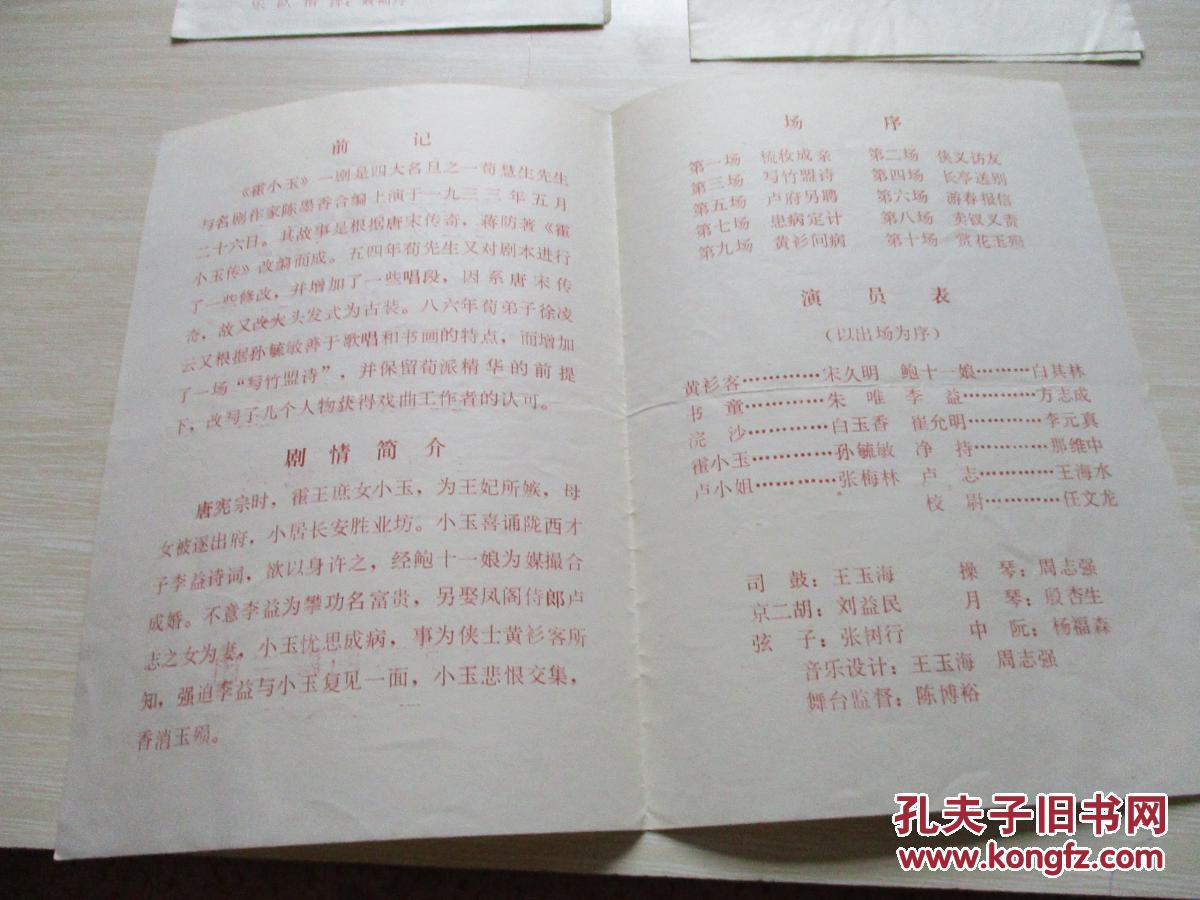 乐队指挥：
前 记
《霍小玉》一剧是四大名旦之一荀慧生先生
与名剧作家陈墨香合编上演于一九三三年五月
二十六日。其故事是根据唐宋传奇，蒋防著《霍
小玉传》改编而成。五四年荀先生又对剧本进行
了一些修改，并增加了一些唱段，因系唐宋传
奇，故又改大头发式为古装。八六年荀弟子徐凌
云又根据孙毓敏善于歌唱和书画的特点，而增加
了一场“写竹盟诗”，并保留荀派精华的前提
下，改写了几个人物获得戏曲工作者的认可。
剧情简介
唐宪宗时，霍王庶女小玉，为王妃所嫉，母
女被逐出府，小居长安胜业坊。小玉喜诵陇西才
子李益诗词，欲以身许之，经鲍十一娘为媒撮合
成婚。不意李益为攀功名富贵，另娶凤阁侍郎卢
志之女为妻，小玉忧思成病，事为侠士黄衫客所
知，强迫李益与小玉复见一面，小玉悲恨交集，
香消玉殒。
场 序
第一场 梳妆成亲 第二场 侠义访友
第三场 写竹盟诗 第四场 长亭送别
第五场 卢府另聘 第六场 游春报信
第七场 患病定计 第八场 卖钗义责
第九场 黄衫问病 第十场 赏花玉殒
演 员 表
（以出场为序）
黄衫客…………宋久明 鲍十一娘………白其林
书 童…………朱 唯 李 益…………方志成
浣 沙…………白玉香 崔允明…………李元真
霍小玉…………孙毓敏 净 持…………那维中
卢小姐…………张梅林 卢 志…………王海水
校 尉…………任文龙
司 鼓：王玉海 操 琴：周志强
京二胡：刘益民 月 琴：殷杏生
弦 子：张树行 中 阮：杨福森
音乐设计：王玉海 周志强
舞台监督：陈博裕
孔夫子旧书网
www.kongfz.com